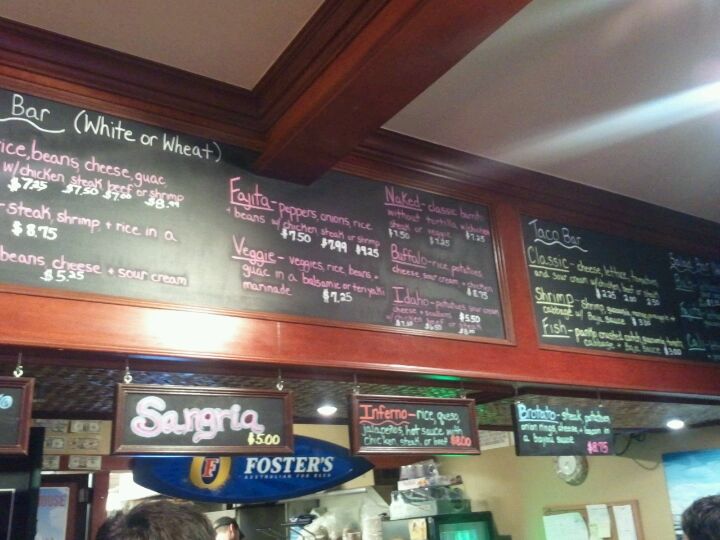 Bar (White or Wheat)
rice, beans, cheese, guac
w/chicken steak beef or shrimp
$7.25 $7.50 $7.00 $8.99
-steak, shrimp + rice in a
$8.75
beans, cheese + sour cream
$5.25
Fajita-peppers, onions, rice
+ beans w/ chicken steak or shrimp
$7.50 $7.99 $9.25
Veggie- veggies, rice, beans +
guac in a balsamic or teriyaki
marinade $7.25
Naked-classic burrito
without tortilla w/chicken
steak or veggie $7.25
$7.50 $7.25
Buffalo-rice, potatoes,
cheese sour cream + chicken
$8.75
Idaho-potatoes sour cream
cheese + scallions $5.50
w/chicken beef or steak
Taco Bar
Classic- cheese, lettuce, tomatoes
and sour cream w/chicken, beef or steak
$2.25 2.00 2.50
Shrimp-
cabbage w/ Baja Sauce $3.00
Fish-
cabbage + Baja Sauce $3.00
Sangria
$5.00
Inferno-rice, queso,
jalapeños, hot sauce with
chicken steak or beef $8.00
Brotato-steak, potatoes,
onion rings, cheese, + bacon in
a bayou sauce
$8.75
F FOSTER'S
AUSTRALIAN FOR BEER